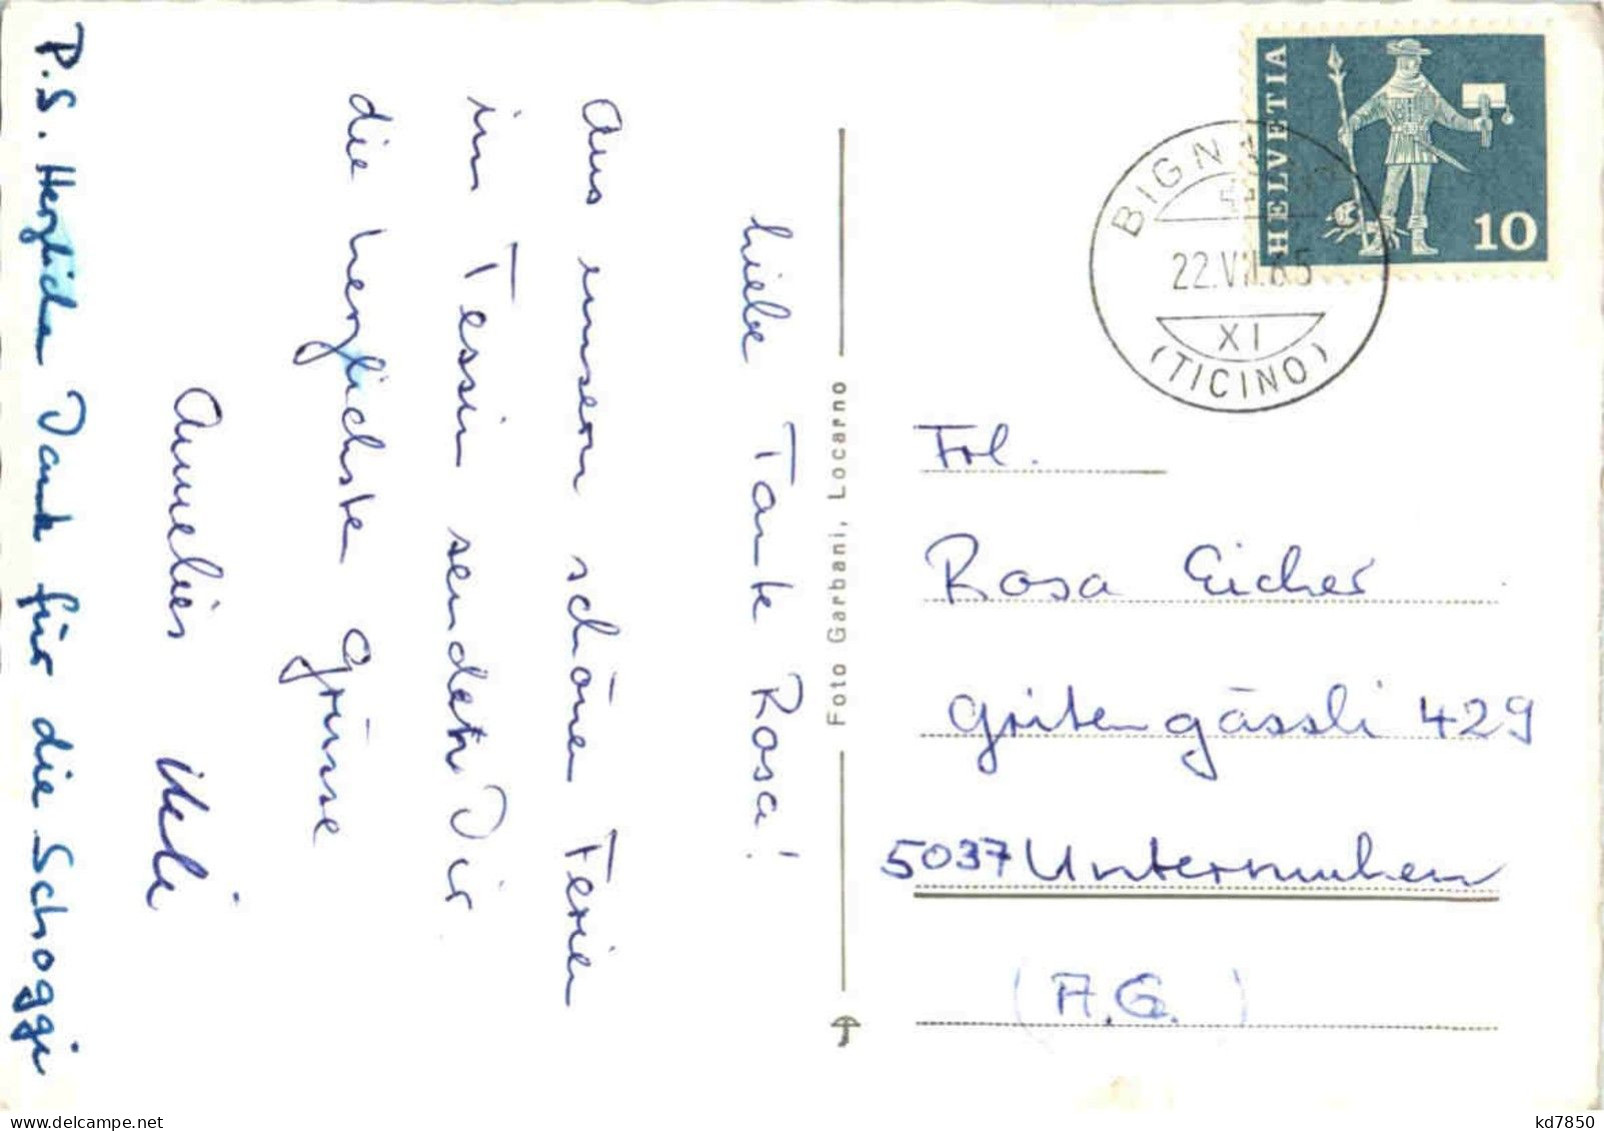 Liebe Tante Rosa!
Aus unsern schönen Ferien
im Tessin sendet Dir
die herzlichste Grüsse
Annelies Ueli
P.S. Herzlichen Dank für die Schoggi
Foto Garbani, Locarno
HELVETIA
10
22.VII.65
XI
(TICINO)
Frl.
Rosa Eicher
Gritengässli 429
5037 Untermuhen
(A.G.)
kd7850